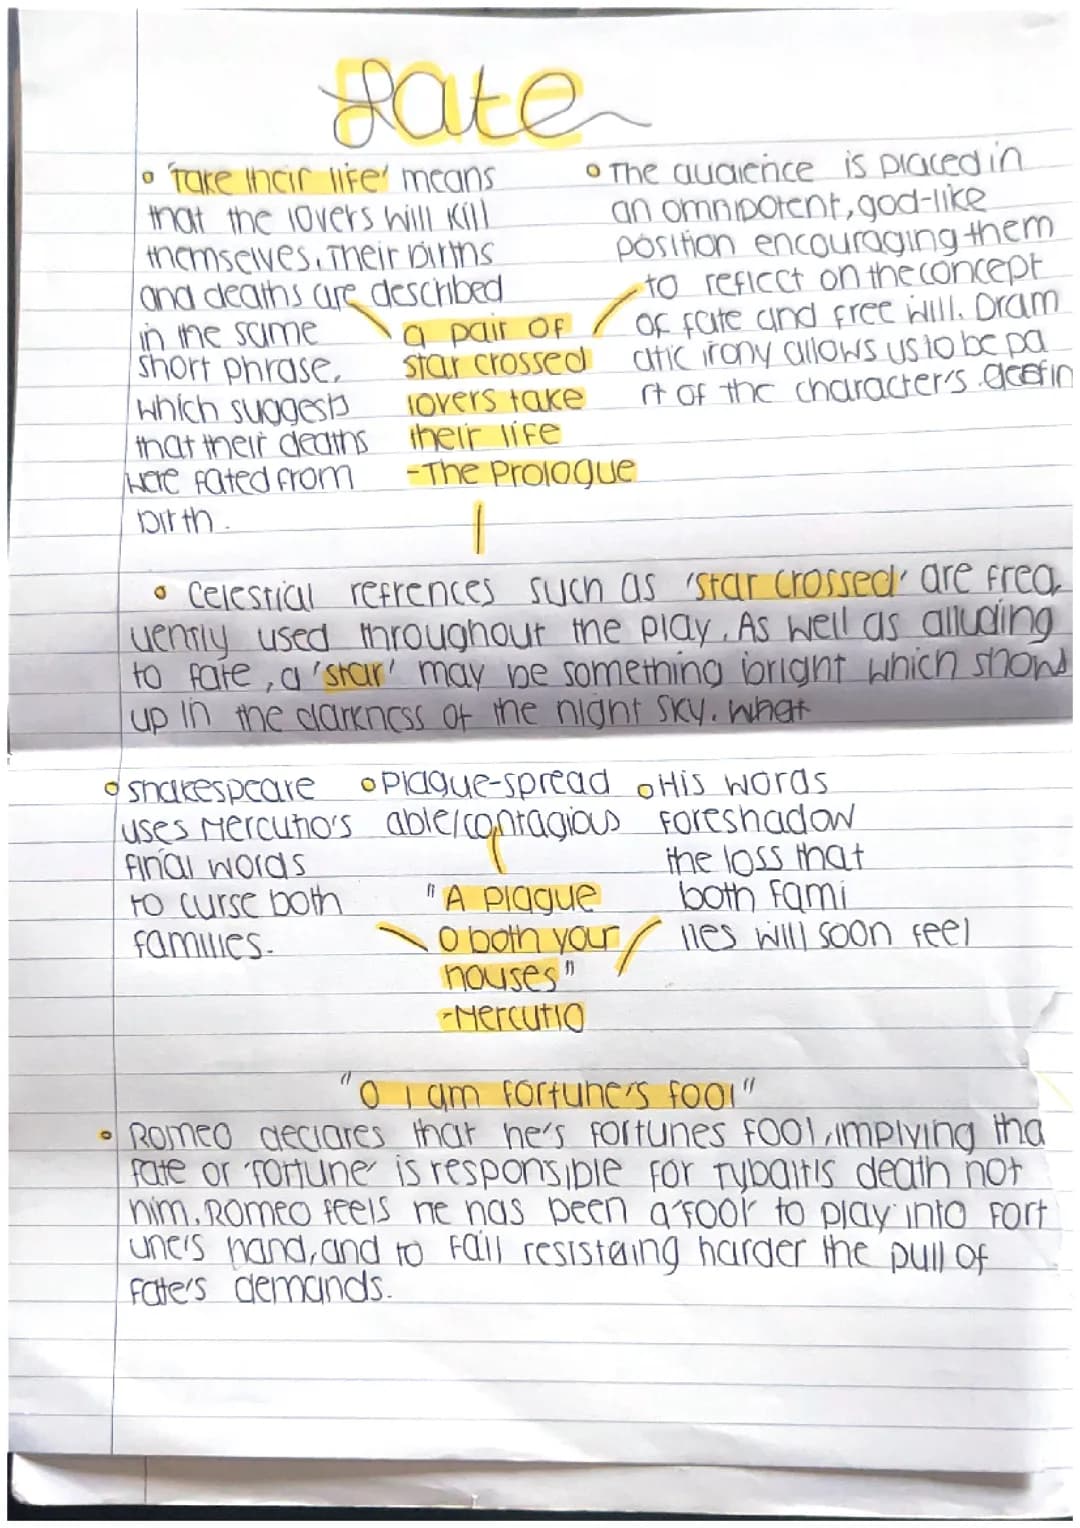 Fate
• 'Take their life' means
that the lovers will kill
themselves. Their births
and deaths are described
in the same
short phrase,
which suggests
that their deaths
were fated from
birth.
• The audience is placed in
an omnipotent, god-like
position encouraging them
to reflect on the concept
of fate and free will. Dram
atic irony allows us to be pa
rt of the character's
a pair of
star crossed
lovers take
their life
-The Prologue
• Celestial refrences such as 'star crossed' are freq
uently used throughout the play. As well as alluding
to fate, a 'star' may be something bright which shows
up in the darkness of the night sky. What
• Shakespeare
uses Mercutio's
final words
to curse both
families.
• Plague-spread
able/contagious
• His words
foreshadow
the loss that
both fami
lies will soon feel
"A plague
O both your
houses"
-Mercutio
"O I am fortune's fool"
• Romeo declares that he's fortunes fool, implying tha
fate or 'fortune' is responsible for Tybalt's death not
him. Romeo feels he has been a 'fool' to play into fort
une's hand, and to fail resisteing harder the pull of
fate's demands.